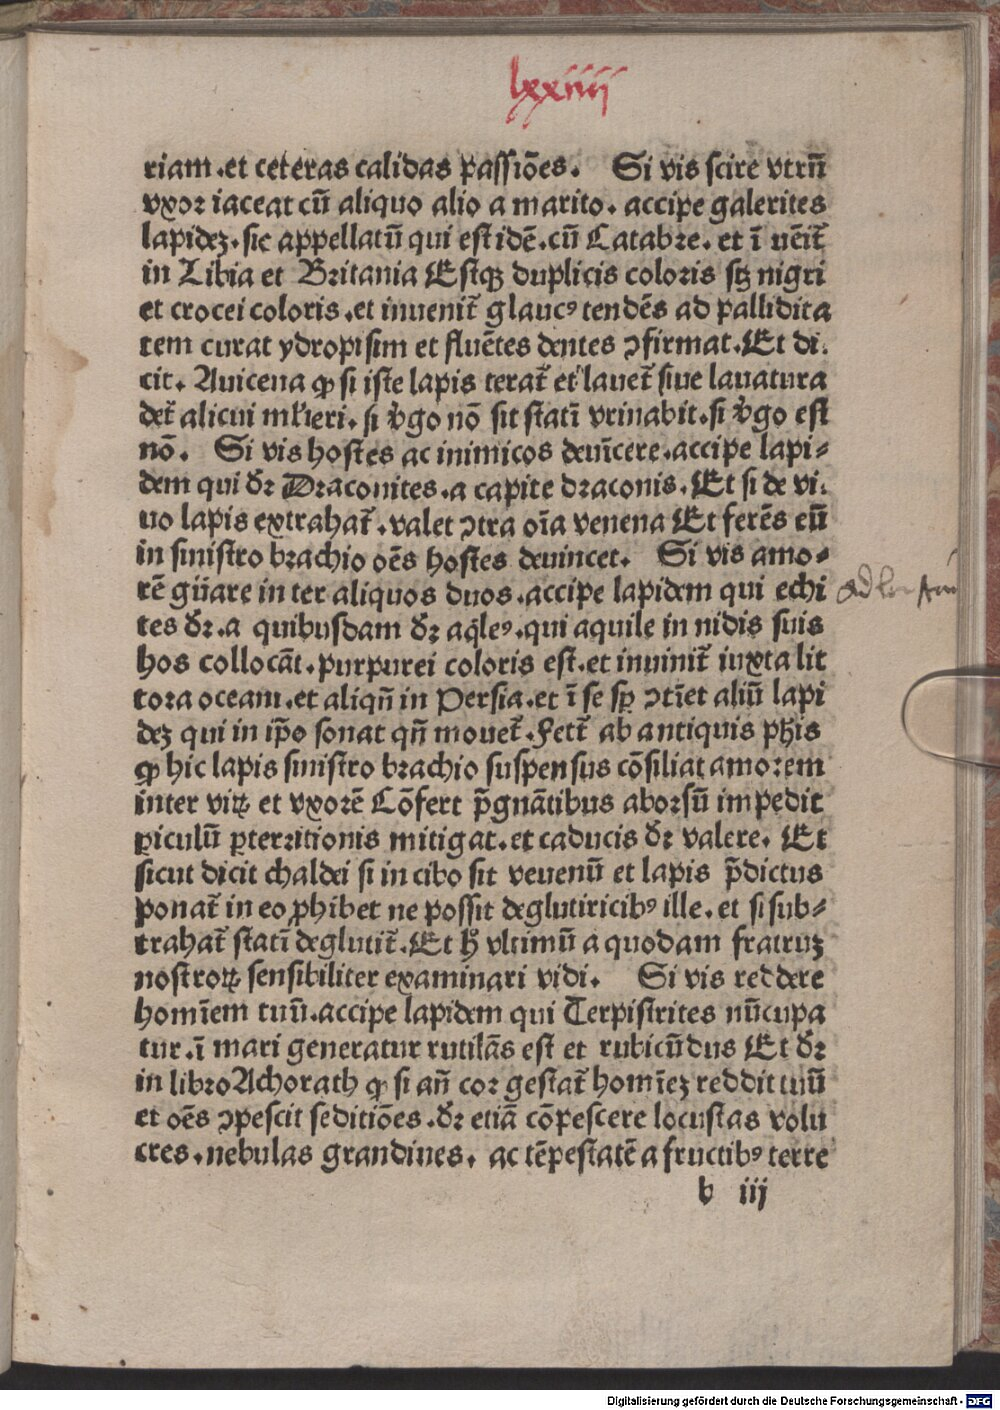 lxxiiij
riam.et ceteras calidas passiões. Si vis scire vtrũ
vxor iaceat cũ aliquo alio a marito. accipe galerites
lapidez. sic appellatũ qui est idẽ. cũ Catabre. et ĩ uẽit̃
in Libia et Britania Estqꝫ duplicis coloris sꝫ nigri
et crocei coloris.et inuenit̃ glaucꝰ tendẽs ad pallidita
tem curat ydropisim et fluẽtes dentes ꝯfirmat.Et di.
cit. Auicena ꝙ si iste lapis terat̃ et lauet̃ siue lauatura
det̃ alicui ml̓ieri. si v̓go nõ sit statĩ vrinabit.si v̓go est
nõ. Si vis hostes ac inimicos deuĩcere.accipe lapi⸗
dem qui dr̃ Draconites.a capite draconis.Et si de vi.
uo lapis extrahat̃.valet ꝯtra oĩa venena Et ferẽs eũ
in sinistro brachio oẽs hostes deuincet. Si vis amo⸗
rẽ gñare in ter aliquos duos.accipe lapidem qui echi
tes dr̃.a quibusdam dr̃ aq̃leꝰ.qui aquile in nidis suis
hos collocãt.purpurei coloris est.et inuinit̃ iuxta lit
tora oceani.et aliqñ in Persia.et ĩ se sꝑ ꝯtĩet aliũ lapi
dez qui in ip̃o sonat qñ mouet̃.Fert̃ ab antiquis ph̃is
ꝙ hic lapis sinistro brachio suspensus cõsiliat amorem
inter virꝫ et vxorẽ Cõfert p̃gnãtibus aborsũ impedit
ꝑiculũ ꝑterritionis mitigat.et caducis dr̃ valere. Et
sicut dicit chaldei si in cibo sit veuenũ et lapis p̃dictus
ponat̃ in eo ꝓhibet ne possit deglutiricibꝰ ille.et si sub⸗
trahat̃ statĩ deglutit̃.Et h̃ vltimũ a quodam fratruꝫ
nostroꝝ sensibiliter examinari vidi. Si vis reddere
homĩem tutũ.accipe lapidem qui Terpistrites nũcupa
tur.ĩ mari generatur rutilãs est et rubicũdus Et dr̃
in libro Achorath ꝙ si añ cor gestat̃ homĩeꝫ reddit tutũ
et oẽs ꝯpescit seditiões.dr̃ etiã cõpescere locustas volu
cres.nebulas grandines. ac tẽpestatẽ a fructibꝰ terre
b iij
Digitalisierung gefördert durch die Deutsche Forschungsgemeinschaft - DFG